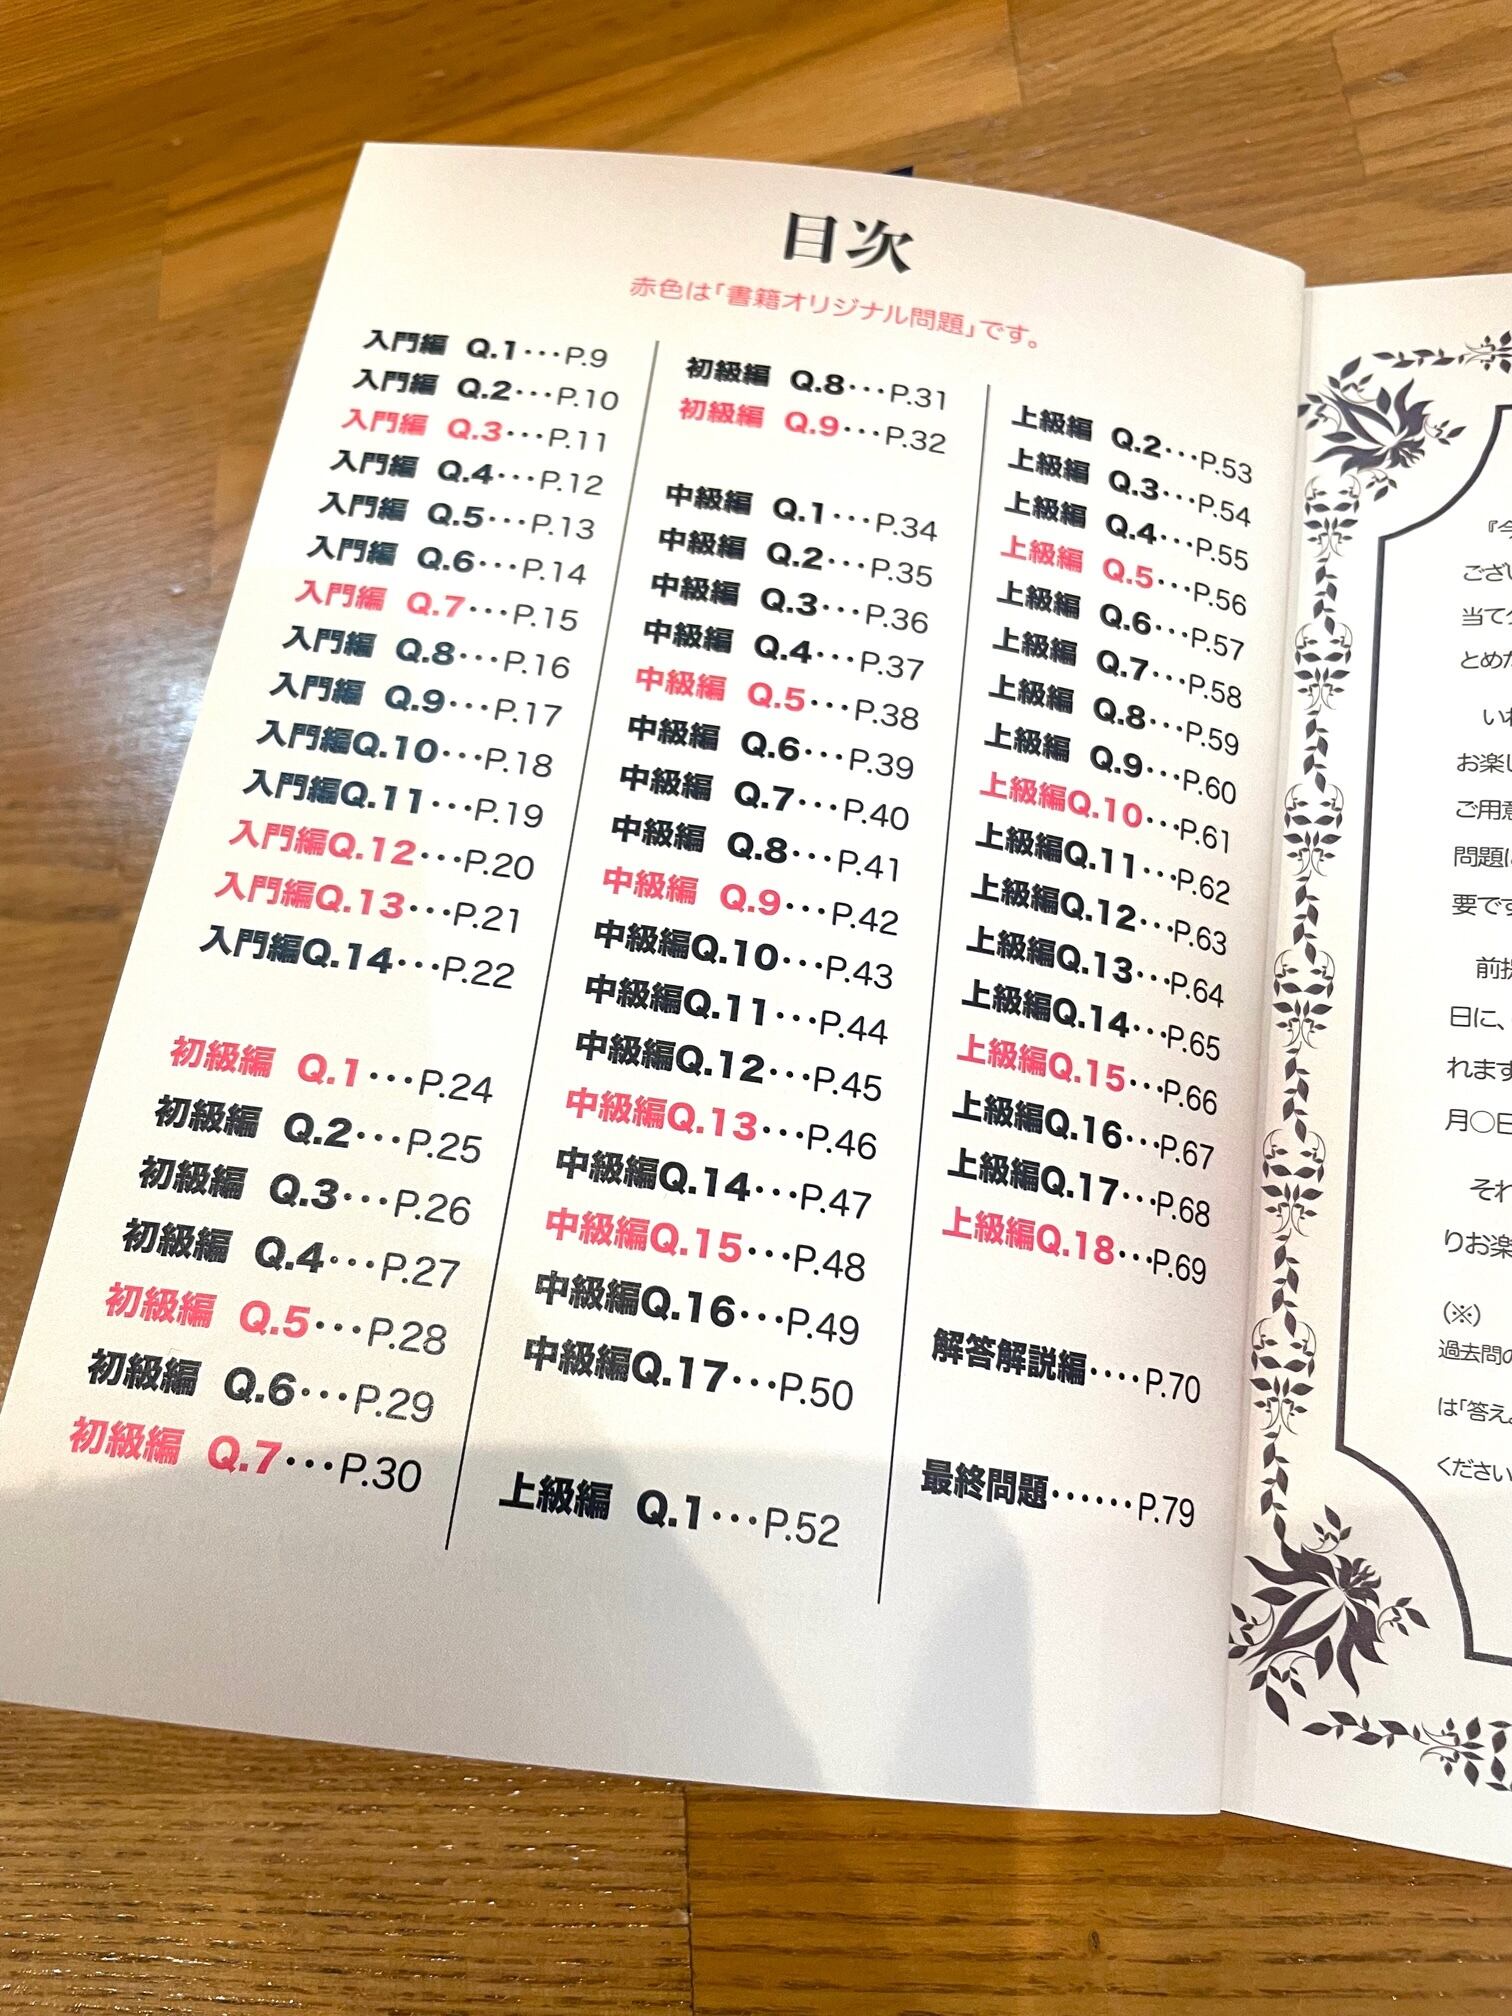 目次
赤色は「書籍オリジナル問題」です。
入門編 Q.1・・・P.9
入門編 Q.2・・・P.10
入門編 Q.3・・・P.11
入門編 Q.4・・・P.12
入門編 Q.5・・・P.13
入門編 Q.6・・・P.14
入門編 Q.7・・・P.15
入門編 Q.8・・・P.16
入門編 Q.9・・・P.17
入門編Q.10・・・P.18
入門編Q.11・・・P.19
入門編Q.12・・・P.20
入門編Q.13・・・P.21
入門編Q.14・・・P.22
初級編 Q.1・・・P.24
初級編 Q.2・・・P.25
初級編 Q.3・・・P.26
初級編 Q.4・・・P.27
初級編 Q.5・・・P.28
初級編 Q.6・・・P.29
初級編 Q.7・・・P.30
初級編 Q.8・・・P.31
初級編 Q.9・・・P.32
中級編 Q.1・・・P.34
中級編 Q.2・・・P.35
中級編 Q.3・・・P.36
中級編 Q.4・・・P.37
中級編 Q.5・・・P.38
中級編 Q.6・・・P.39
中級編 Q.7・・・P.40
中級編 Q.8・・・P.41
中級編 Q.9・・・P.42
中級編Q.10・・・P.43
中級編Q.11・・・P.44
中級編Q.12・・・P.45
中級編Q.13・・・P.46
中級編Q.14・・・P.47
中級編Q.15・・・P.48
中級編Q.16・・・P.49
中級編Q.17・・・P.50
上級編 Q.1・・・P.52
上級編 Q.2・・・P.53
上級編 Q.3・・・P.54
上級編 Q.4・・・P.55
上級編 Q.5・・・P.56
上級編 Q.6・・・P.57
上級編 Q.7・・・P.58
上級編 Q.8・・・P.59
上級編 Q.9・・・P.60
上級編Q.10・・・P.61
上級編Q.11・・・P.62
上級編Q.12・・・P.63
上級編Q.13・・・P.64
上級編Q.14・・・P.65
上級編Q.15・・・P.66
上級編Q.16・・・P.67
上級編Q.17・・・P.68
上級編Q.18・・・P.69
解答解説編・・・・P.70
最終問題・・・・・・P.79
『今
ござい
当て
とめた
いわ
お楽し
ご用意
問題に
要です
前提
日に、
れます
月○日
それ
りお楽
(※)
過去問の
は「答え
ください